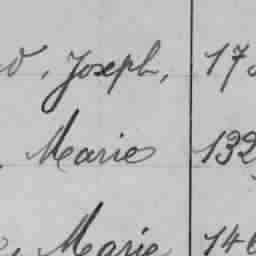 , Joseph, 17
, Marie 132
, Marie 146